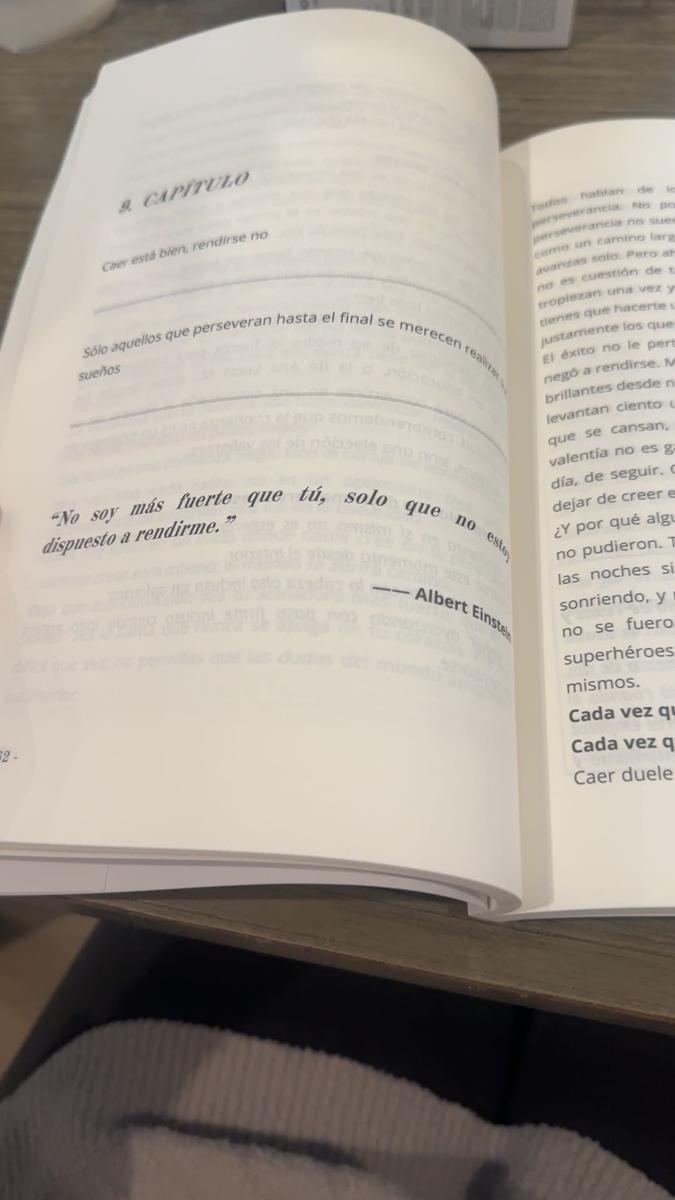 9. CAPÍTULO
Caer está bien, rendirse no
Sólo aquellos que perseveran hasta el final se merecen realizar
sueños
“No soy más fuerte que tú, solo que no estoy
dispuesto a rendirme.”
—— Albert Einstein
62 -
Todos hablan de
perseverancia. No
perseverancia no
como un camino
avanzas solo. Pero
no es cuestión de
tropiezan una vez y
tienes que hacerte
justamente los que
El éxito no le
negó a rendirse.
brillantes desde
levantan ciento
que se cansan,
valentía no es
día, de seguir.
dejar de creer
¿Y por qué
no pudieron.
las noches
sonriendo, y
no se
superhéroes
mismos.
Cada vez
Cada vez
Caer duele